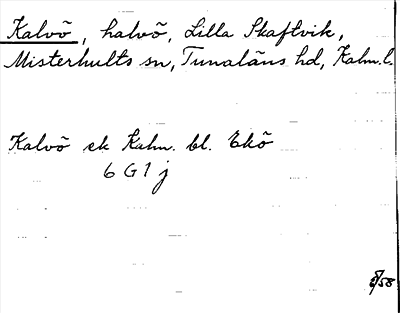 Kalvö, halvö, Lilla Skaftvik,
Misterhults sn, Tunaläns hd, Kalm. l.
Kalvö ek Kalm. bl. Ekö
6 G 1 j
58